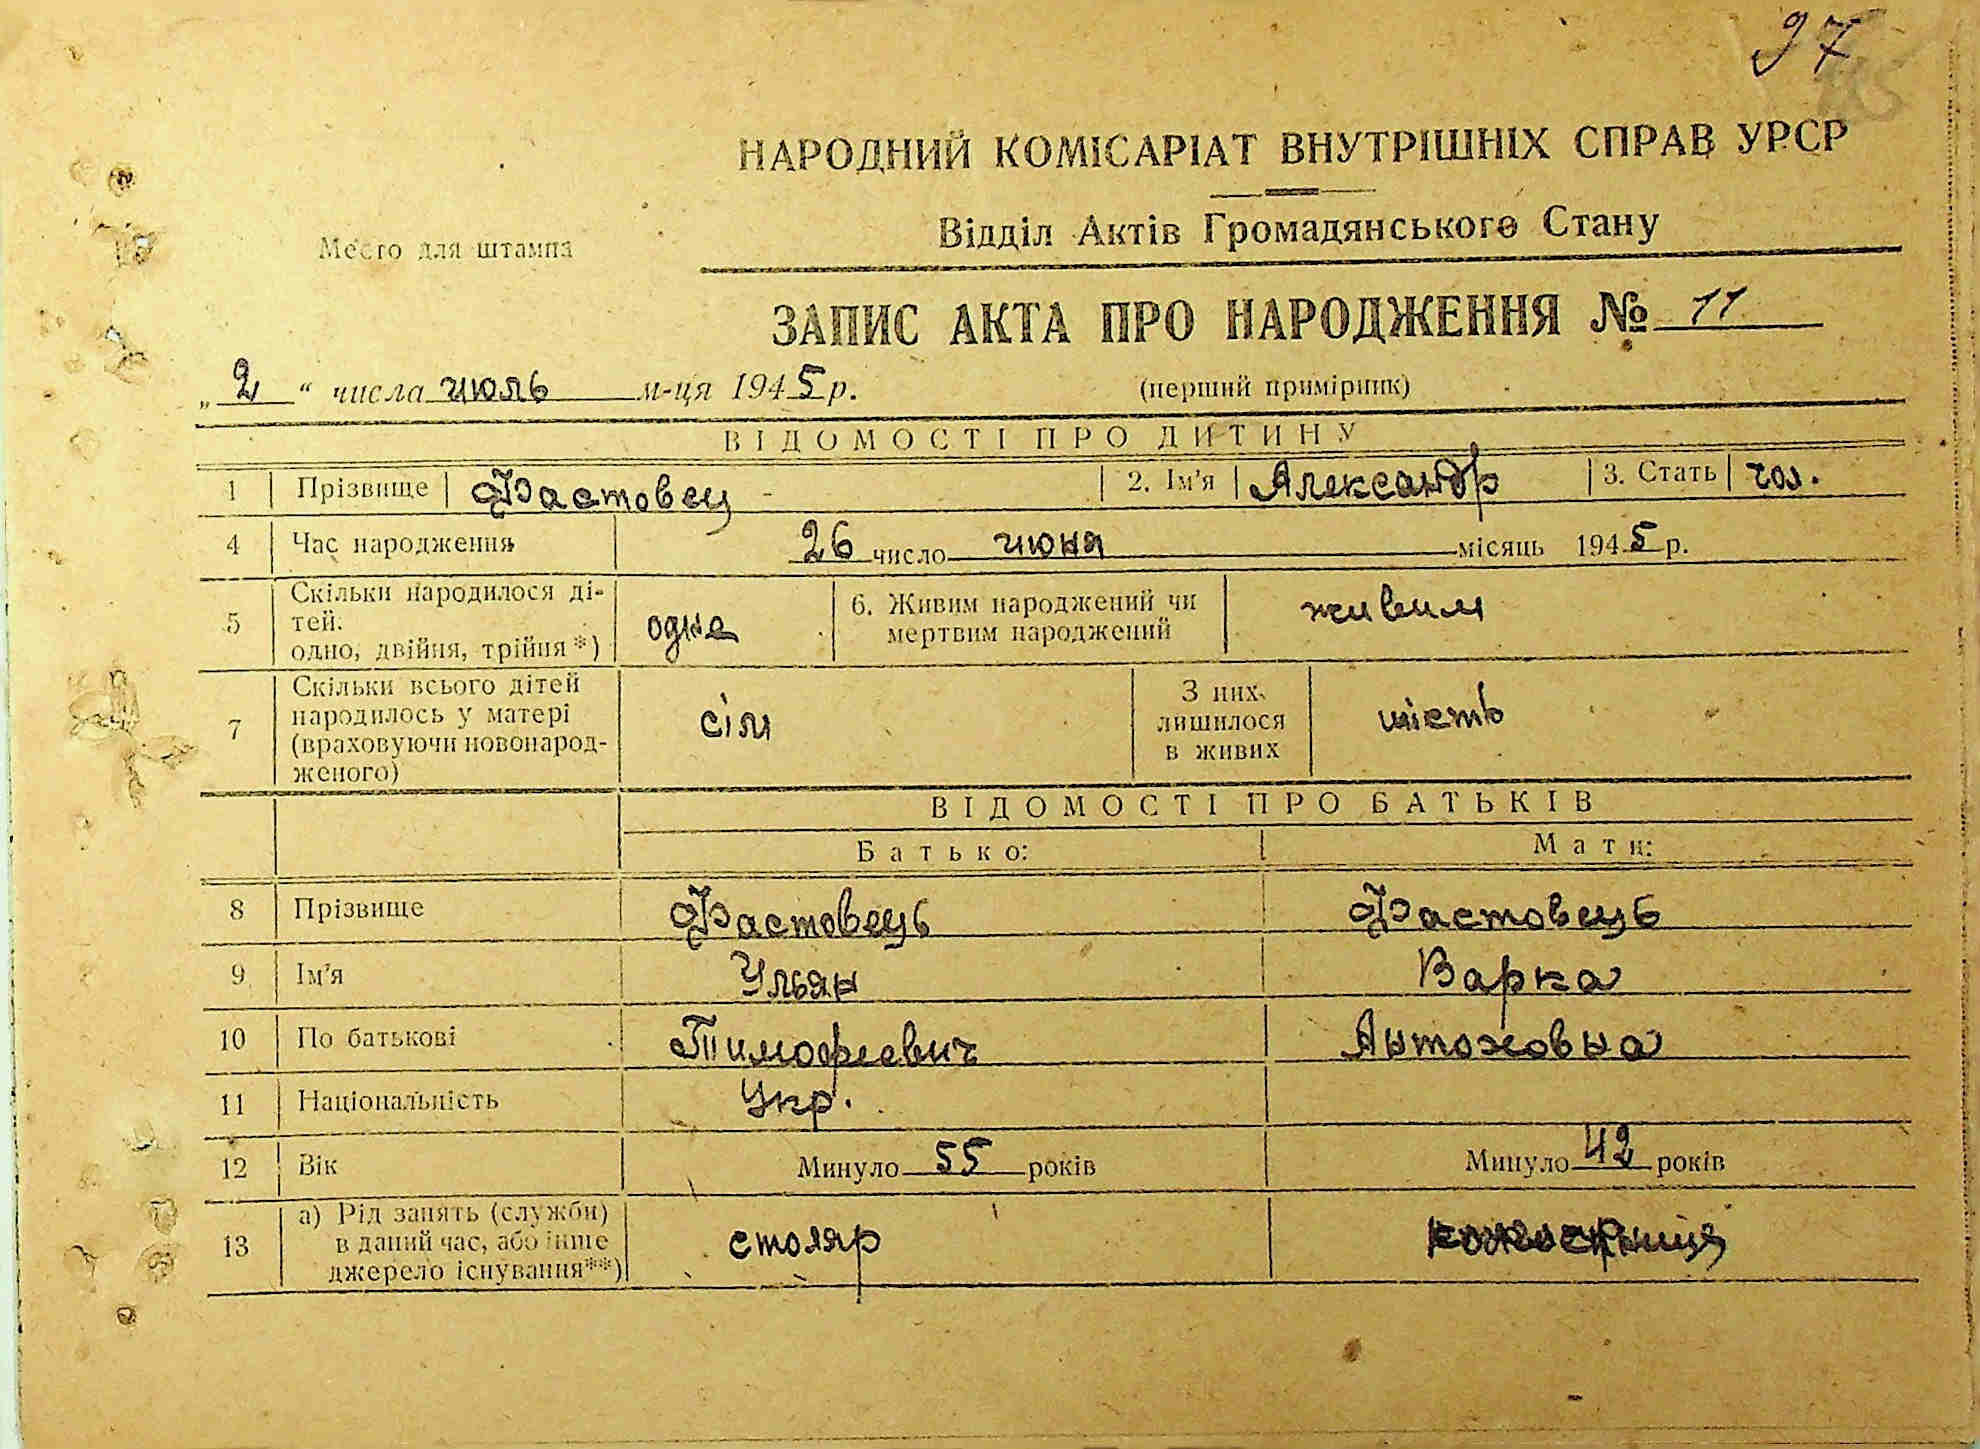 97
НАРОДНИЙ КОМІСАРІАТ ВНУТРІШНІХ СПРАВ УРСР
Відділ Актів Громадянського Стану
Место для штампа
ЗАПИС АКТА ПРО НАРОДЖЕННЯ № 11
„2“ числа июль м-ця 1945 р. (перший примірник)
ВІДОМОСТІ ПРО ДИТИНУ
1 Прізвище Фастовец 2. Ім'я Александр 3. Стать чол.
4 Час народження 26 число июня місяць 1945 р.
5 Скільки народилося ді-
тей:
одно, двійня, трійня*) одна
6. Живим народжений чи
мертвим народжений живим
7 Скільки всього дітей
народилось у матері
(враховуючи новонарод-
женого) сім
З них
лишилося
в живих шість
ВІДОМОСТІ ПРО БАТЬКІВ
Батько: Мати:
8 Прізвище Фастовець Фастовець
9 Ім'я Ульян Варка
10 По батькові Тимофеевич Антоновна
11 Національність Укр.
12 Вік Минуло 55 років Минуло 42 років
13 а) Рід занять (служби)
в даний час, або інше
джерело існування**) столяр